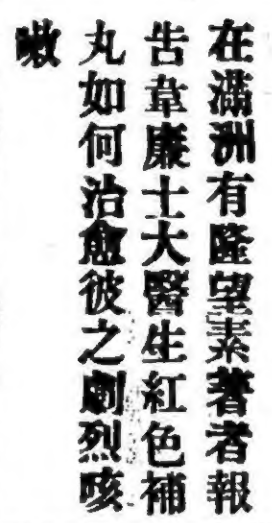 在滿洲有隆望素著者報
告韋廉士大醫生紅色補
丸如何治愈彼之劇烈咳
嗽